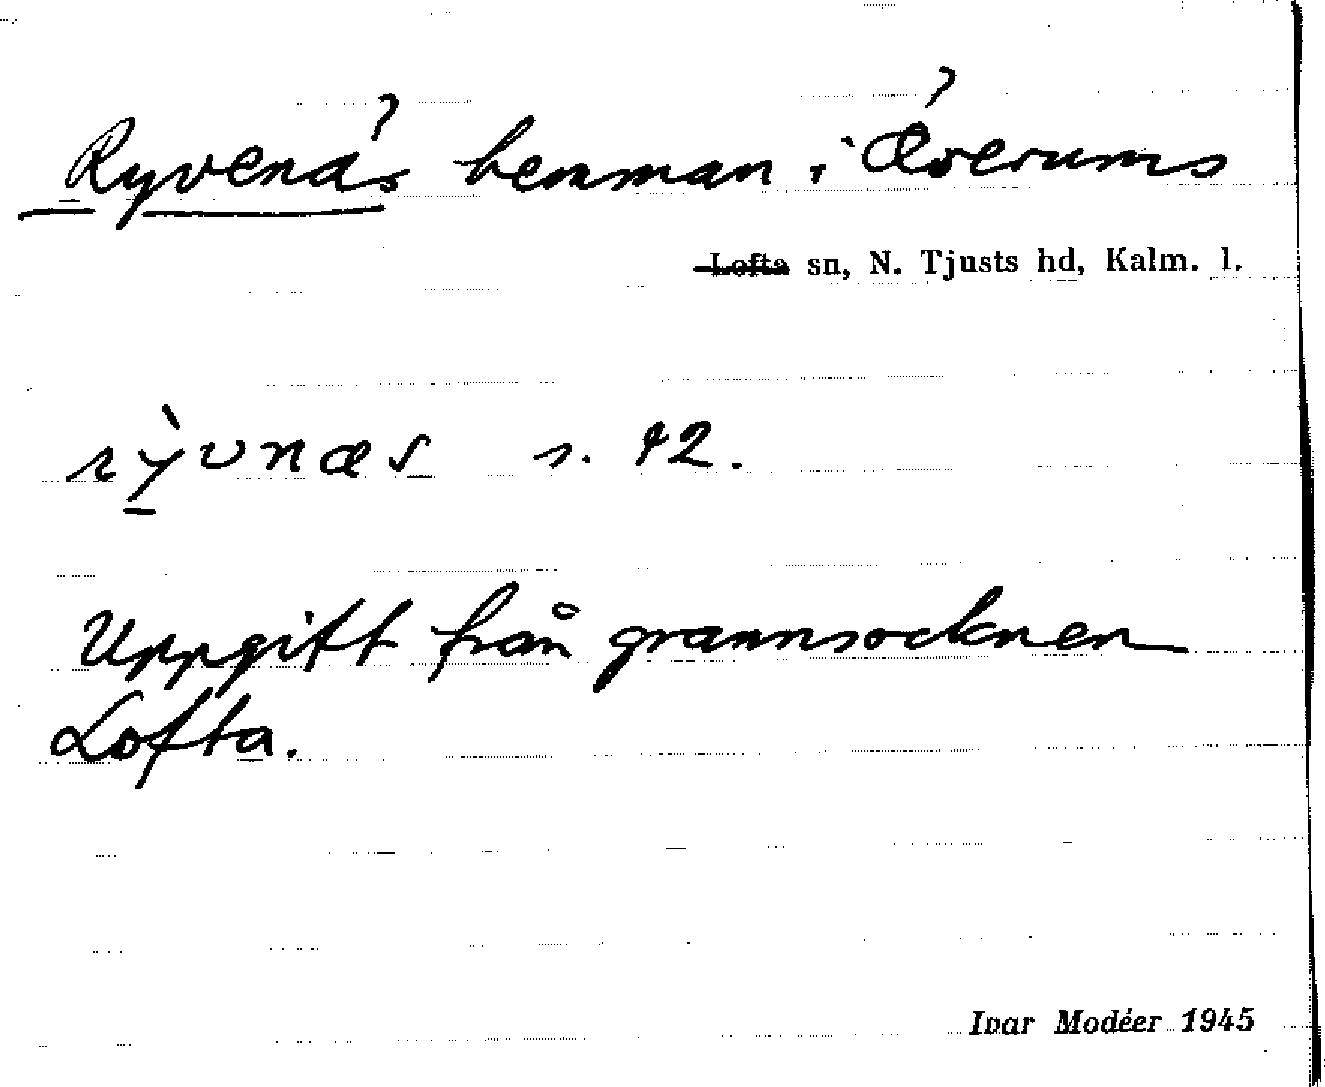 Ryvenäs hemman i Överums
Lofta sn, N. Tjusts hd, Kalm. l.
rỳvnæs s. 42.
Uppgift från grannsocknen
Lofta.
Ivar Modéer 1945